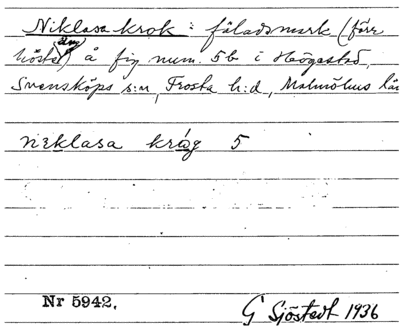 Niklasa krok : fäladsmark (förr
höste äng) å fig num. 5b i Högestad,
Svensköps s:n, Frosta h:d, Malmöhus län
niklasa kråg 5
Nr 5942.
G Sjöstedt 1936